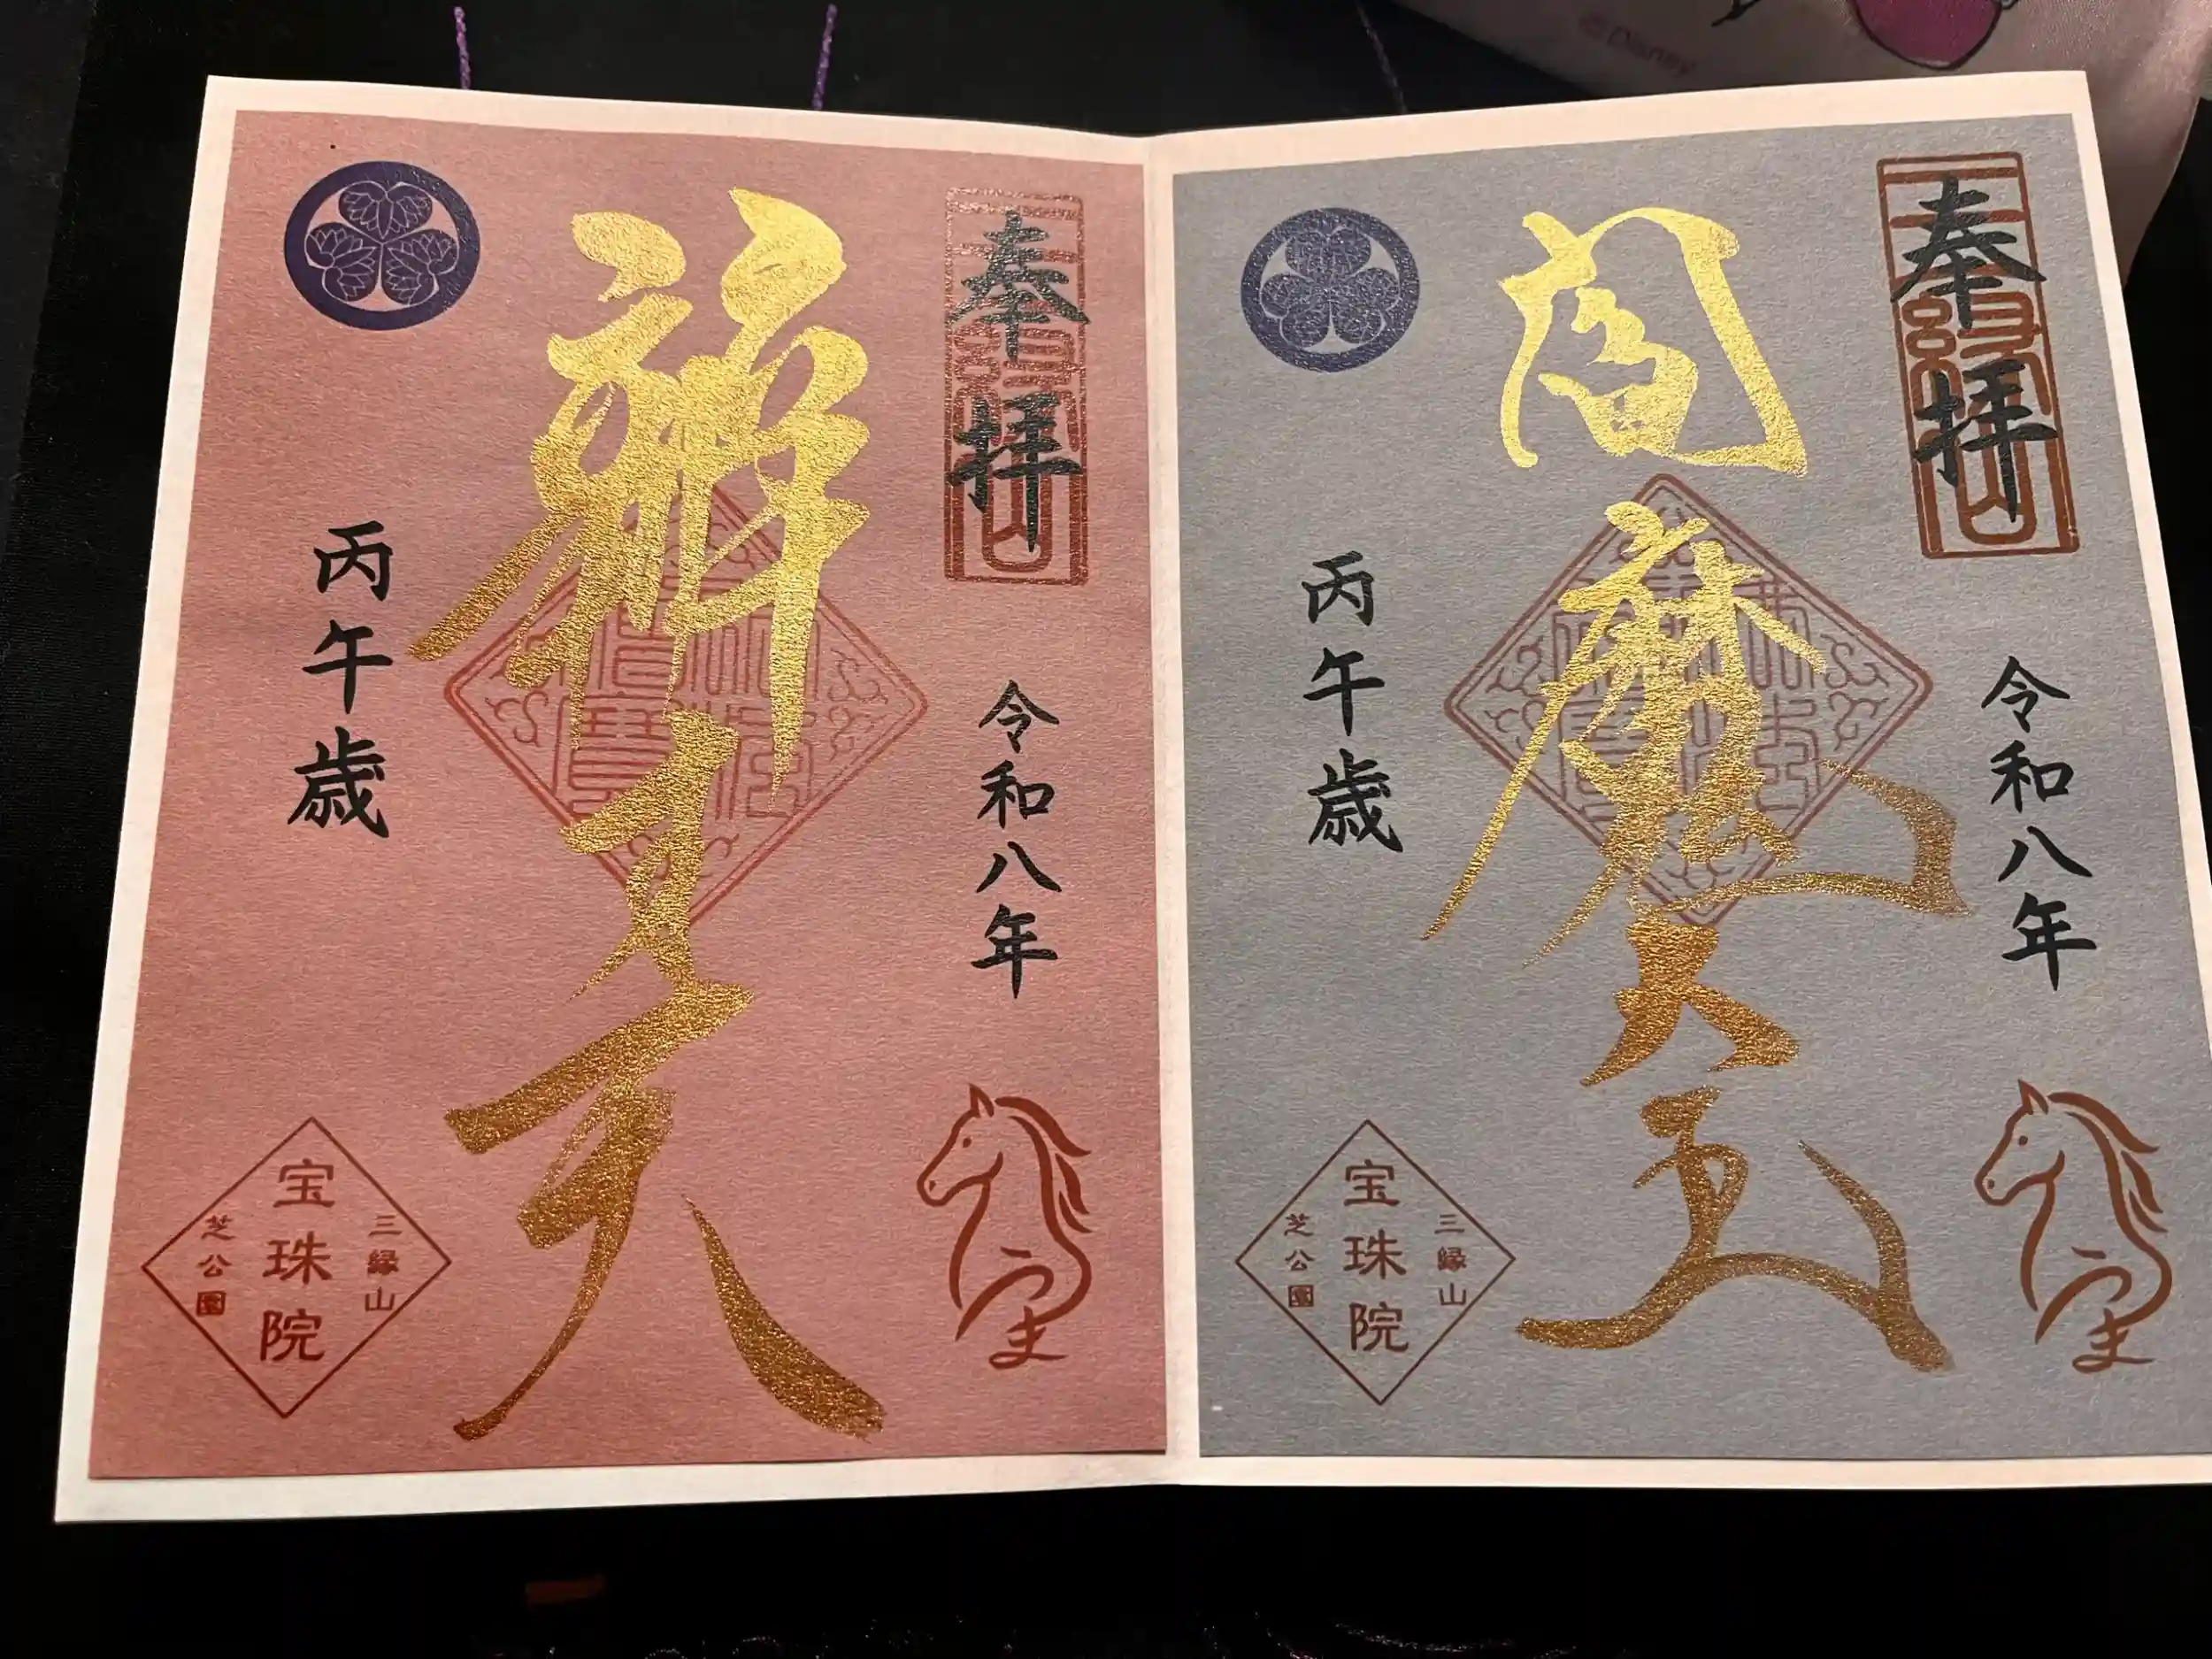 © Disney
奉拝
三縁山
令和八年
閻魔大王
丙午歳
うま
三縁山
宝珠院
芝公園
奉拝
三縁山
令和八年
辨才天
丙午歳
うま
三縁山
宝珠院
芝公園